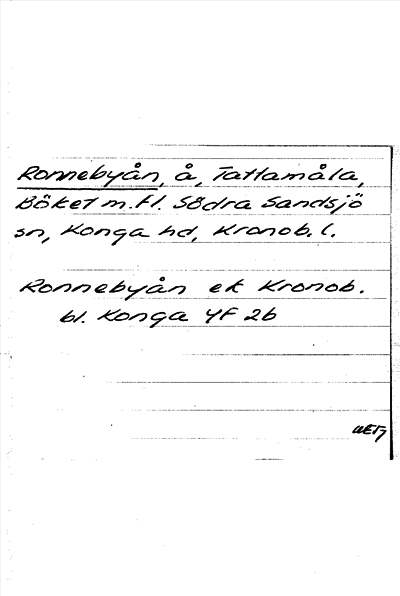 Ronnebyån, å, Tattamåla,
Böket m.fl. Södra Sandsjö
sn, Konga hd, Kronob. l.
Ronnebyån ek Kronob.
bl. Konga 4F 2b